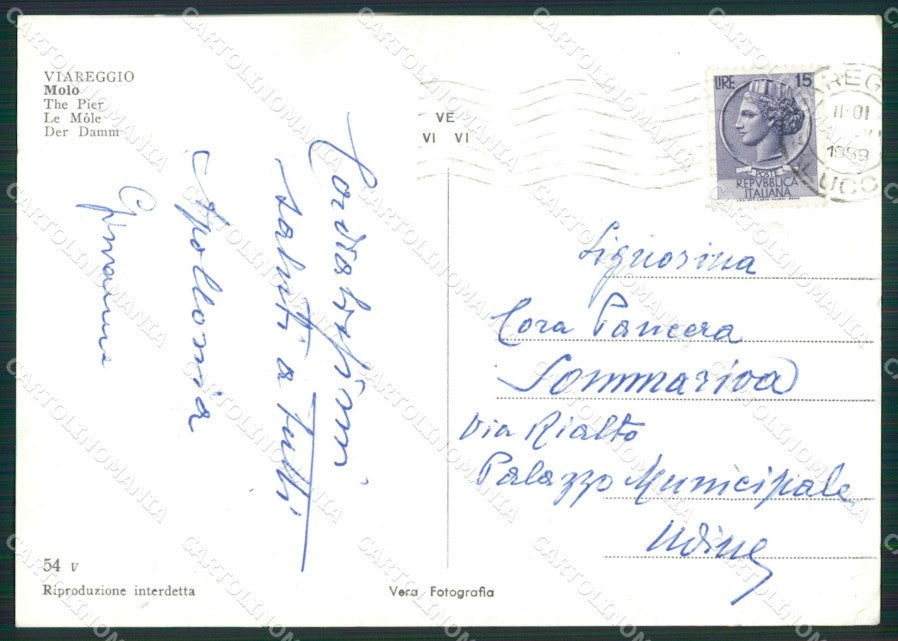 VIAREGGIO
Molo
The Pier
Le Môle
Der Damm
VE
VI VI
LIRE 15
POSTE
REPVBBLICA
ITALIANA
1959
Cordialissimi
saluti a tutti
Apollonia
Signorina
Cora Pancera
Sommariva
Via Rialto
Palazzo Municipale
Udine
54 v
Riproduzione interdetta
Vera Fotografia
CARTOLINOMANIA